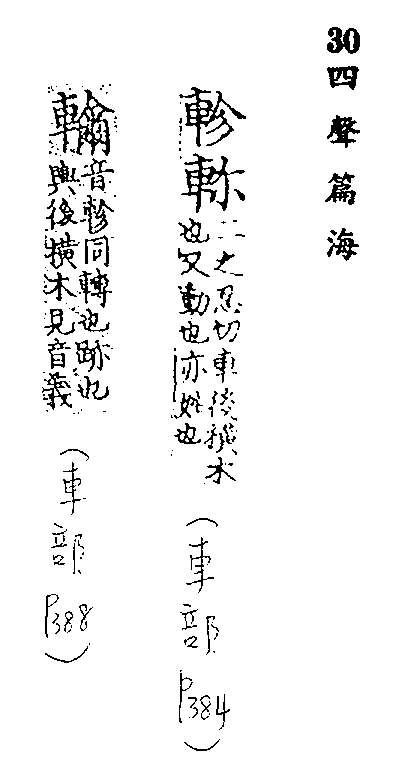 30四聲篇海
軫軫二之忍切車後橫木
也又動也亦姓也
(車部P384)
音軫同轉也跡也
輿後橫木見音義
(車部P388)